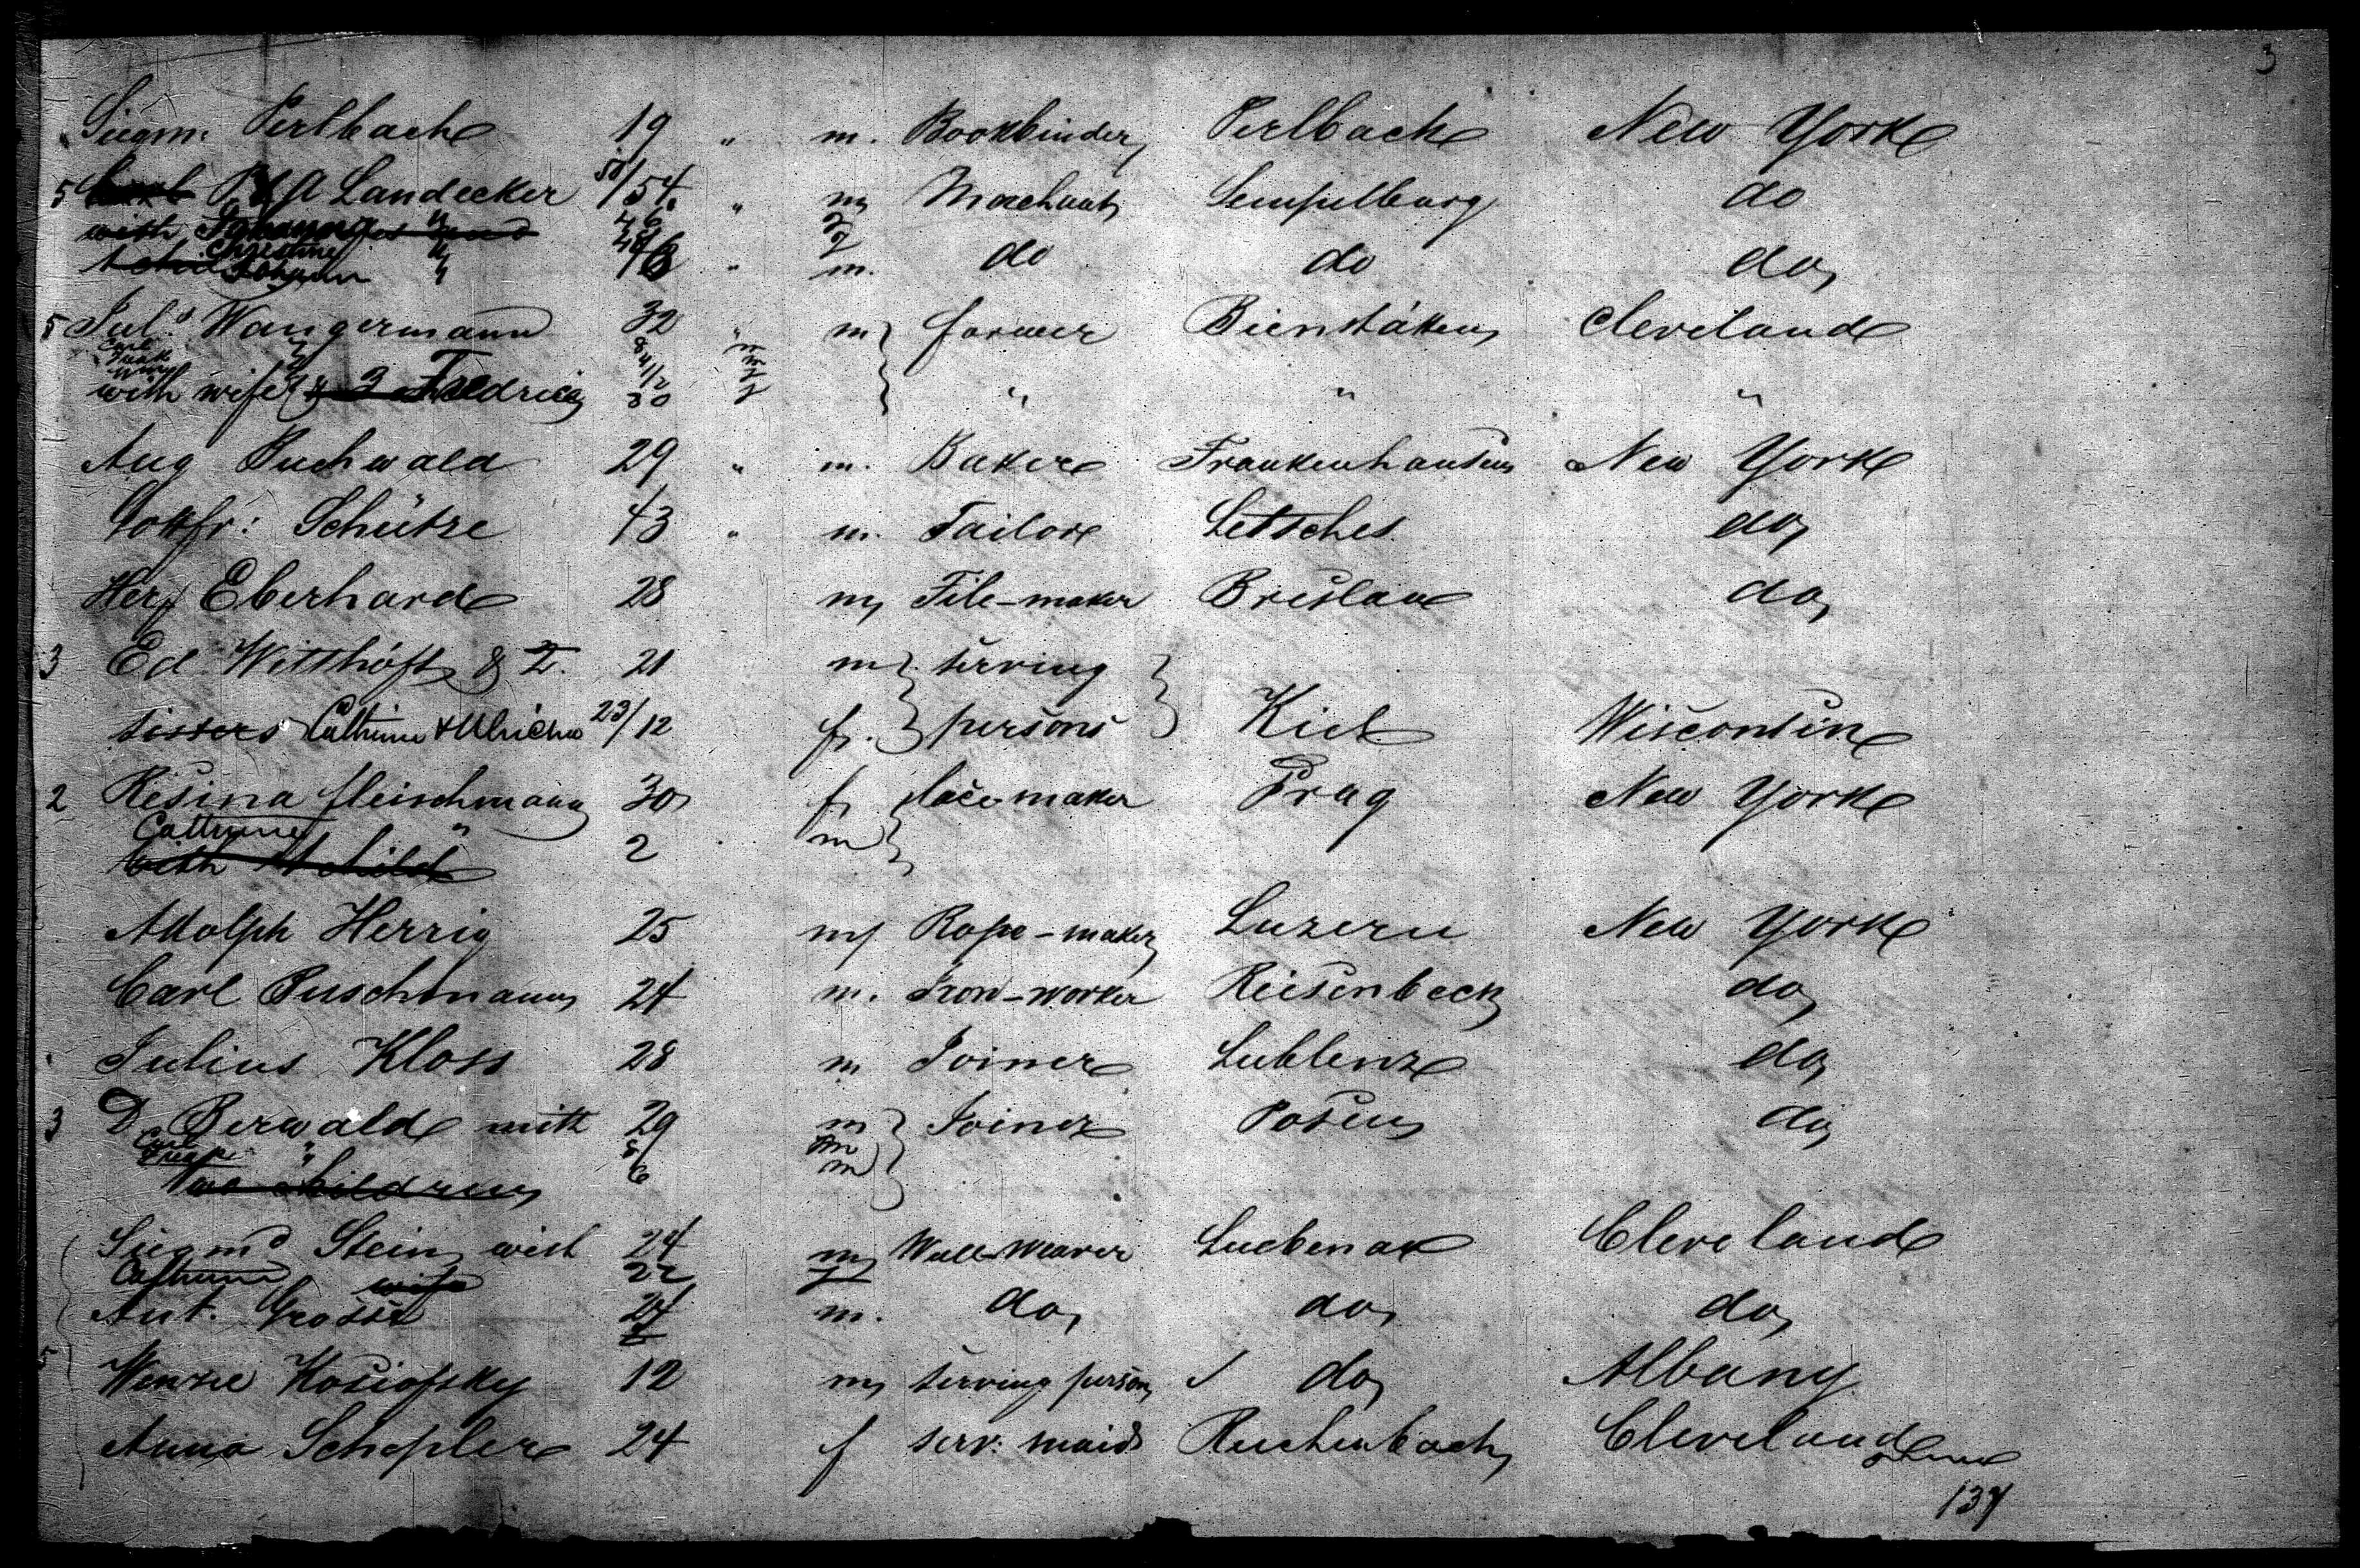 3
Siegm. Perlbach 19 " m. Bookbinder Perlbach New York
5 P & A Landecker 50/54 " m Merchant Sempelburg do
with Johanna " 46 f
Christine " 48 f
Johann " 16 " m. do do do
5 Jul⁵ Wangermann 32 " m farmer Bienstäken Cleveland
Carl " 8 m
4 m
1/2 f
with wife & 3 Fredricia 30 f " " "
Aug Puchwald 29 " m. Baker Frankenhausen New York
Gottfr: Schütze 43 " m. Tailor Letsches do
Herm Eberhard 28 m File-maker Breslau do
3 Ed Witthöft & 2 21 m serving
sisters Cathrine & Ulricha 23/12 f. persons Kiel Wisconsin
2 Resina fleischmann 30 f lace maker Prag New York
Cathrine " 2 m
with 1 child
Adolph Herrig 25 m Rope-maker Luzern New York
Carl Puschmann 24 m. Iron-worker Riesenbeck do
Julius Kloss 28 m Joiner Lublenz do
3 D. Berwald with 29 m Joiner Posen do
Carl 8 m
" 6 m
Two children
Siegmd Stein with 24 m Wall-Weaver Luebenau Cleveland
Cathrine wife 22 f
Ant. Grosse 24 m. do do do
5 Wenzie Kosiofsky 12 m serving person do Albany
Anna Schepler 24 f serv: maid Reichenbach Cleveland
137